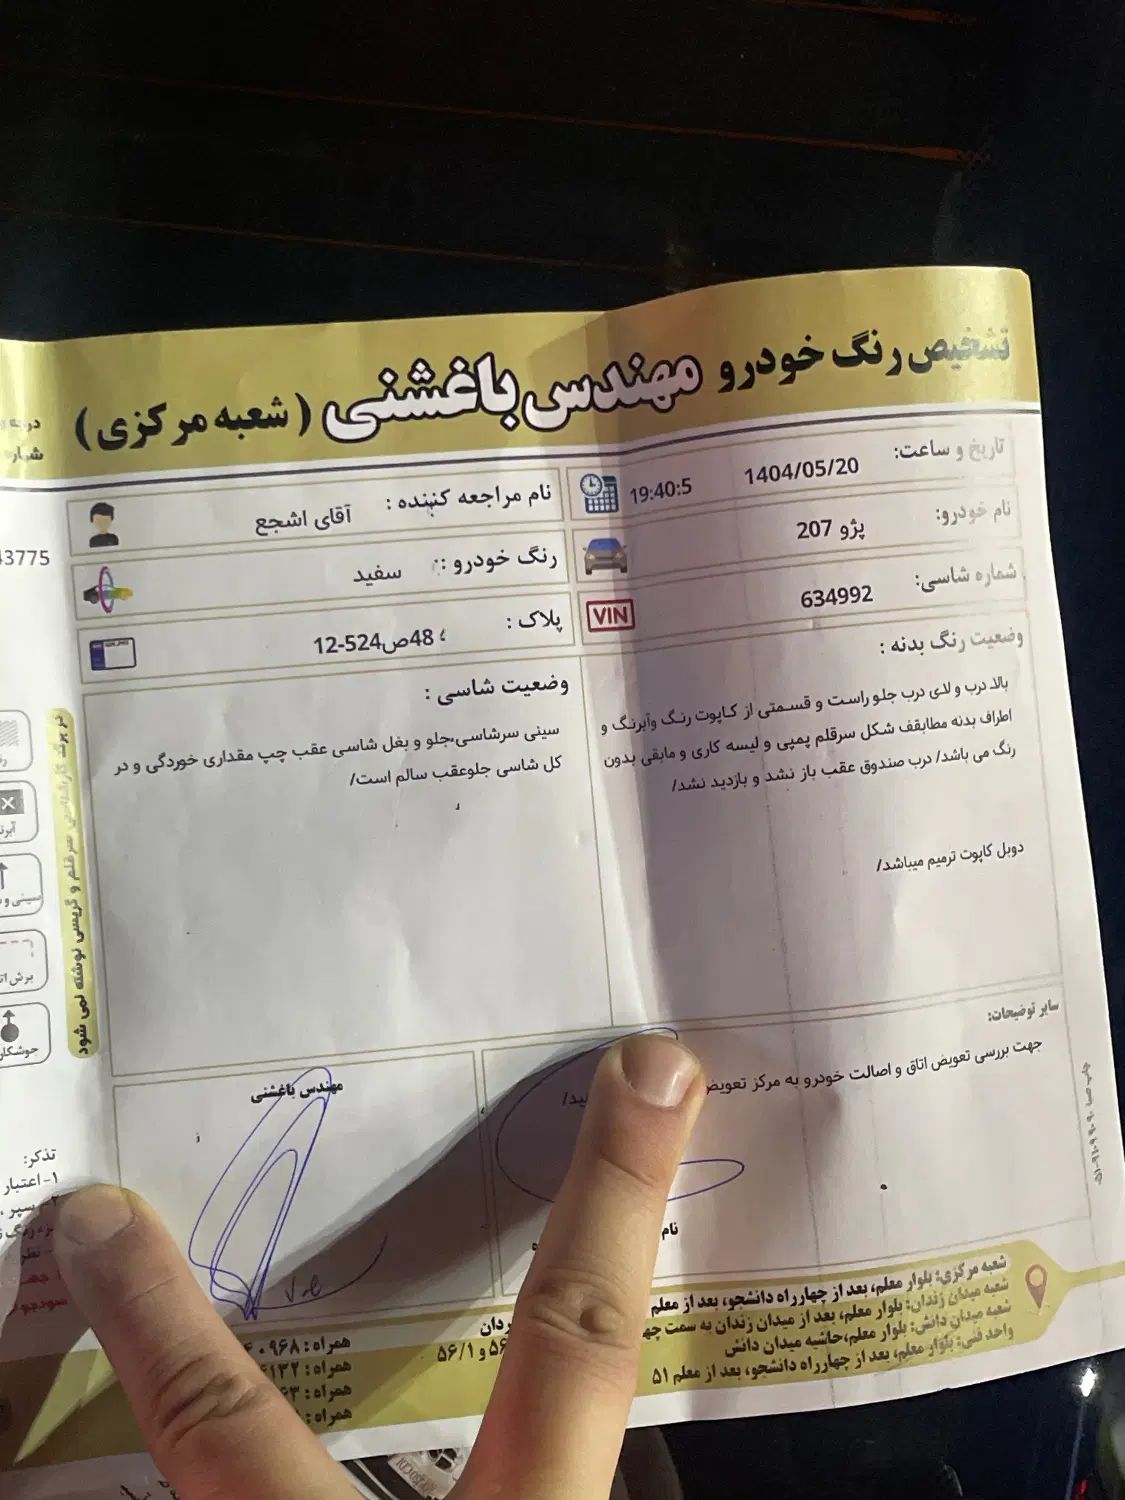 تشخیص رنگ خودرو مهندس باغشنی (شعبه مرکزی)
تاریخ و ساعت: 1404/05/20 19:40:5
نام مراجعه کننده: آقای اشجع
نام خودرو: پژو 207
رنگ خودرو: سفید
شماره شاسی: 634992
VIN
پلاک: 48ص524-12
وضعیت رنگ بدنه:
بالا درب و لای درب جلو راست و قسمتی از کاپوت رنگ وآبرنگ و
اطراف بدنه مطابقف شکل سرقلم پمپی و لیسه کاری و مابقی بدون
رنگ می باشد/ درب صندوق عقب باز نشد و بازدید نشد/
دوبل کاپوت ترمیم میباشد/
وضعیت شاسی:
سینی سرشاسی،جلو و بغل شاسی عقب چپ مقداری خوردگی و در
کل شاسی جلوعقب سالم است/
سایر توضیحات:
جهت بررسی تعویض اتاق و اصالت خودرو به مرکز تعویض
مهندس باغشنی
نام
شعبه مرکزی: بلوار معلم، بعد از چهارراه دانشجو، بعد از معلم
شعبه میدان زندان: بلوار معلم، بعد از میدان زندان به سمت
شعبه میدان دانش: بلوار معلم،حاشیه میدان دانش
واحد فنی: بلوار معلم، بعد از چهارراه دانشجو، بعد از معلم ۵۱
۵۶ و ۵۶/۱
همراه: ۰۹۶۸
همراه: ۱۳۲
همراه: ۶۳
همراه:
43775
در برگه کارشناسی سرقلم و گریسی نوشته نمی شود
تذکر:
۱- اعتبار
سپر